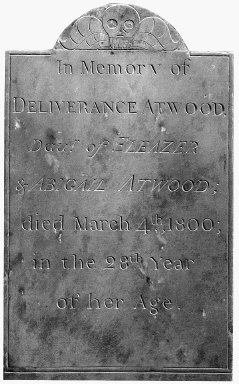 In Memory of
DELIVERANCE ATWOOD.
Daur of ELEAZER
& ABIGAIL ATWOOD;
died March 4th, 1800;
in the 28th Year
of her Age.